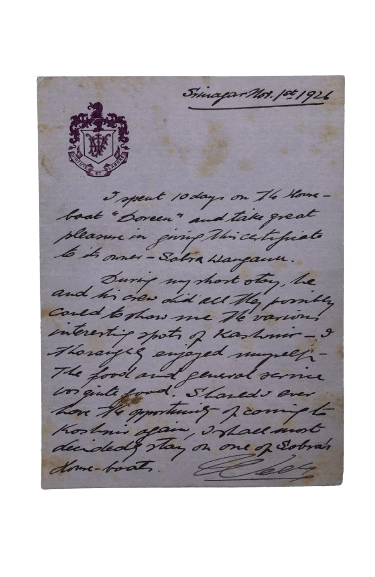 Srinagar Nov. 1st 1926
I spent 10 days on the House-
boat "Doreen" and take great
pleasure in giving this certificate
to its owner - Sobra Wangnoo.
During my short stay, he
and his crew did all they possibly
could to show me the various
interesting spots of Kashmir - I
thoroughly enjoyed myself -
The food and general service
was quite good, Should I ever
have the opportunity of coming to
Kashmir again, I shall most
decidedly stay on one of Sobra's
House-boats.